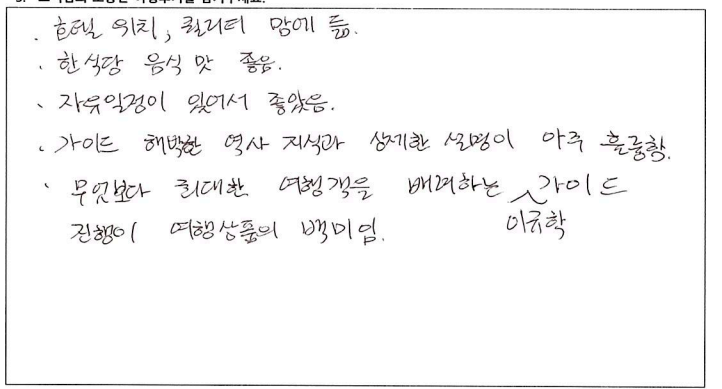 . 호텔 위치, 퀄리티 맘에 듦.
. 한식당 음식 맛 좋음.
. 자유일정이 있어서 좋았음.
. 가이드 해박한 역사 지식과 상세한 설명이 아주 훌륭함.
. 무엇보다 최대한 여행객을 배려하는 이규학 가이드
진행이 여행상품의 백미임.